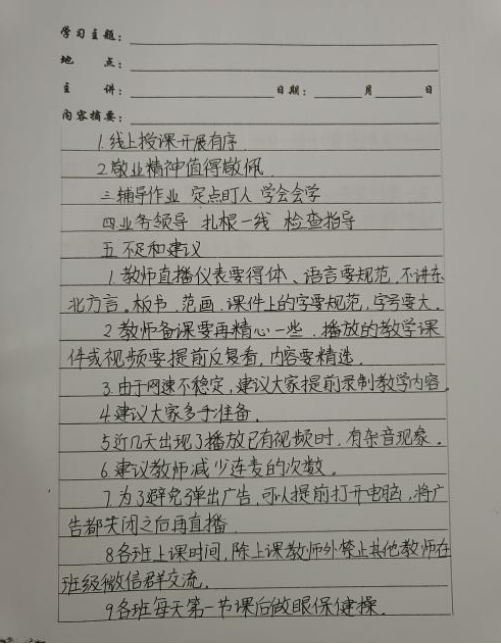 学习主题：
地 点：
主 讲： 日期： 月 日
内容摘要：
1.线上授课开展有序
2.敬业精神值得敬佩
三 辅导作业 定点盯人 学会会学
四 业务领导 扎根一线 检查指导
五 不足和建议
1.教师直播仪表要得体、语言要规范,不讲东
北方言。板书、范画、课件上的字要规范,字号要大。
2.教师备课要再精心一些.播放的教学课
件或视频要提前反复看,内容要精选。
3.由于网速不稳定,建议大家提前录制教学内容。
4.建议大家多手准备。
5近几天出现了播放已有视频时,有杂音现象。
6.建议教师减少连麦的次数。
7为了避免弹出广告,可以提前打开电脑,将广
告都关闭之后再直播.
8各班上课时间,除上课教师外禁止其他教师在
班级微信群交流.
9各班每天第一节课后做眼保健操.